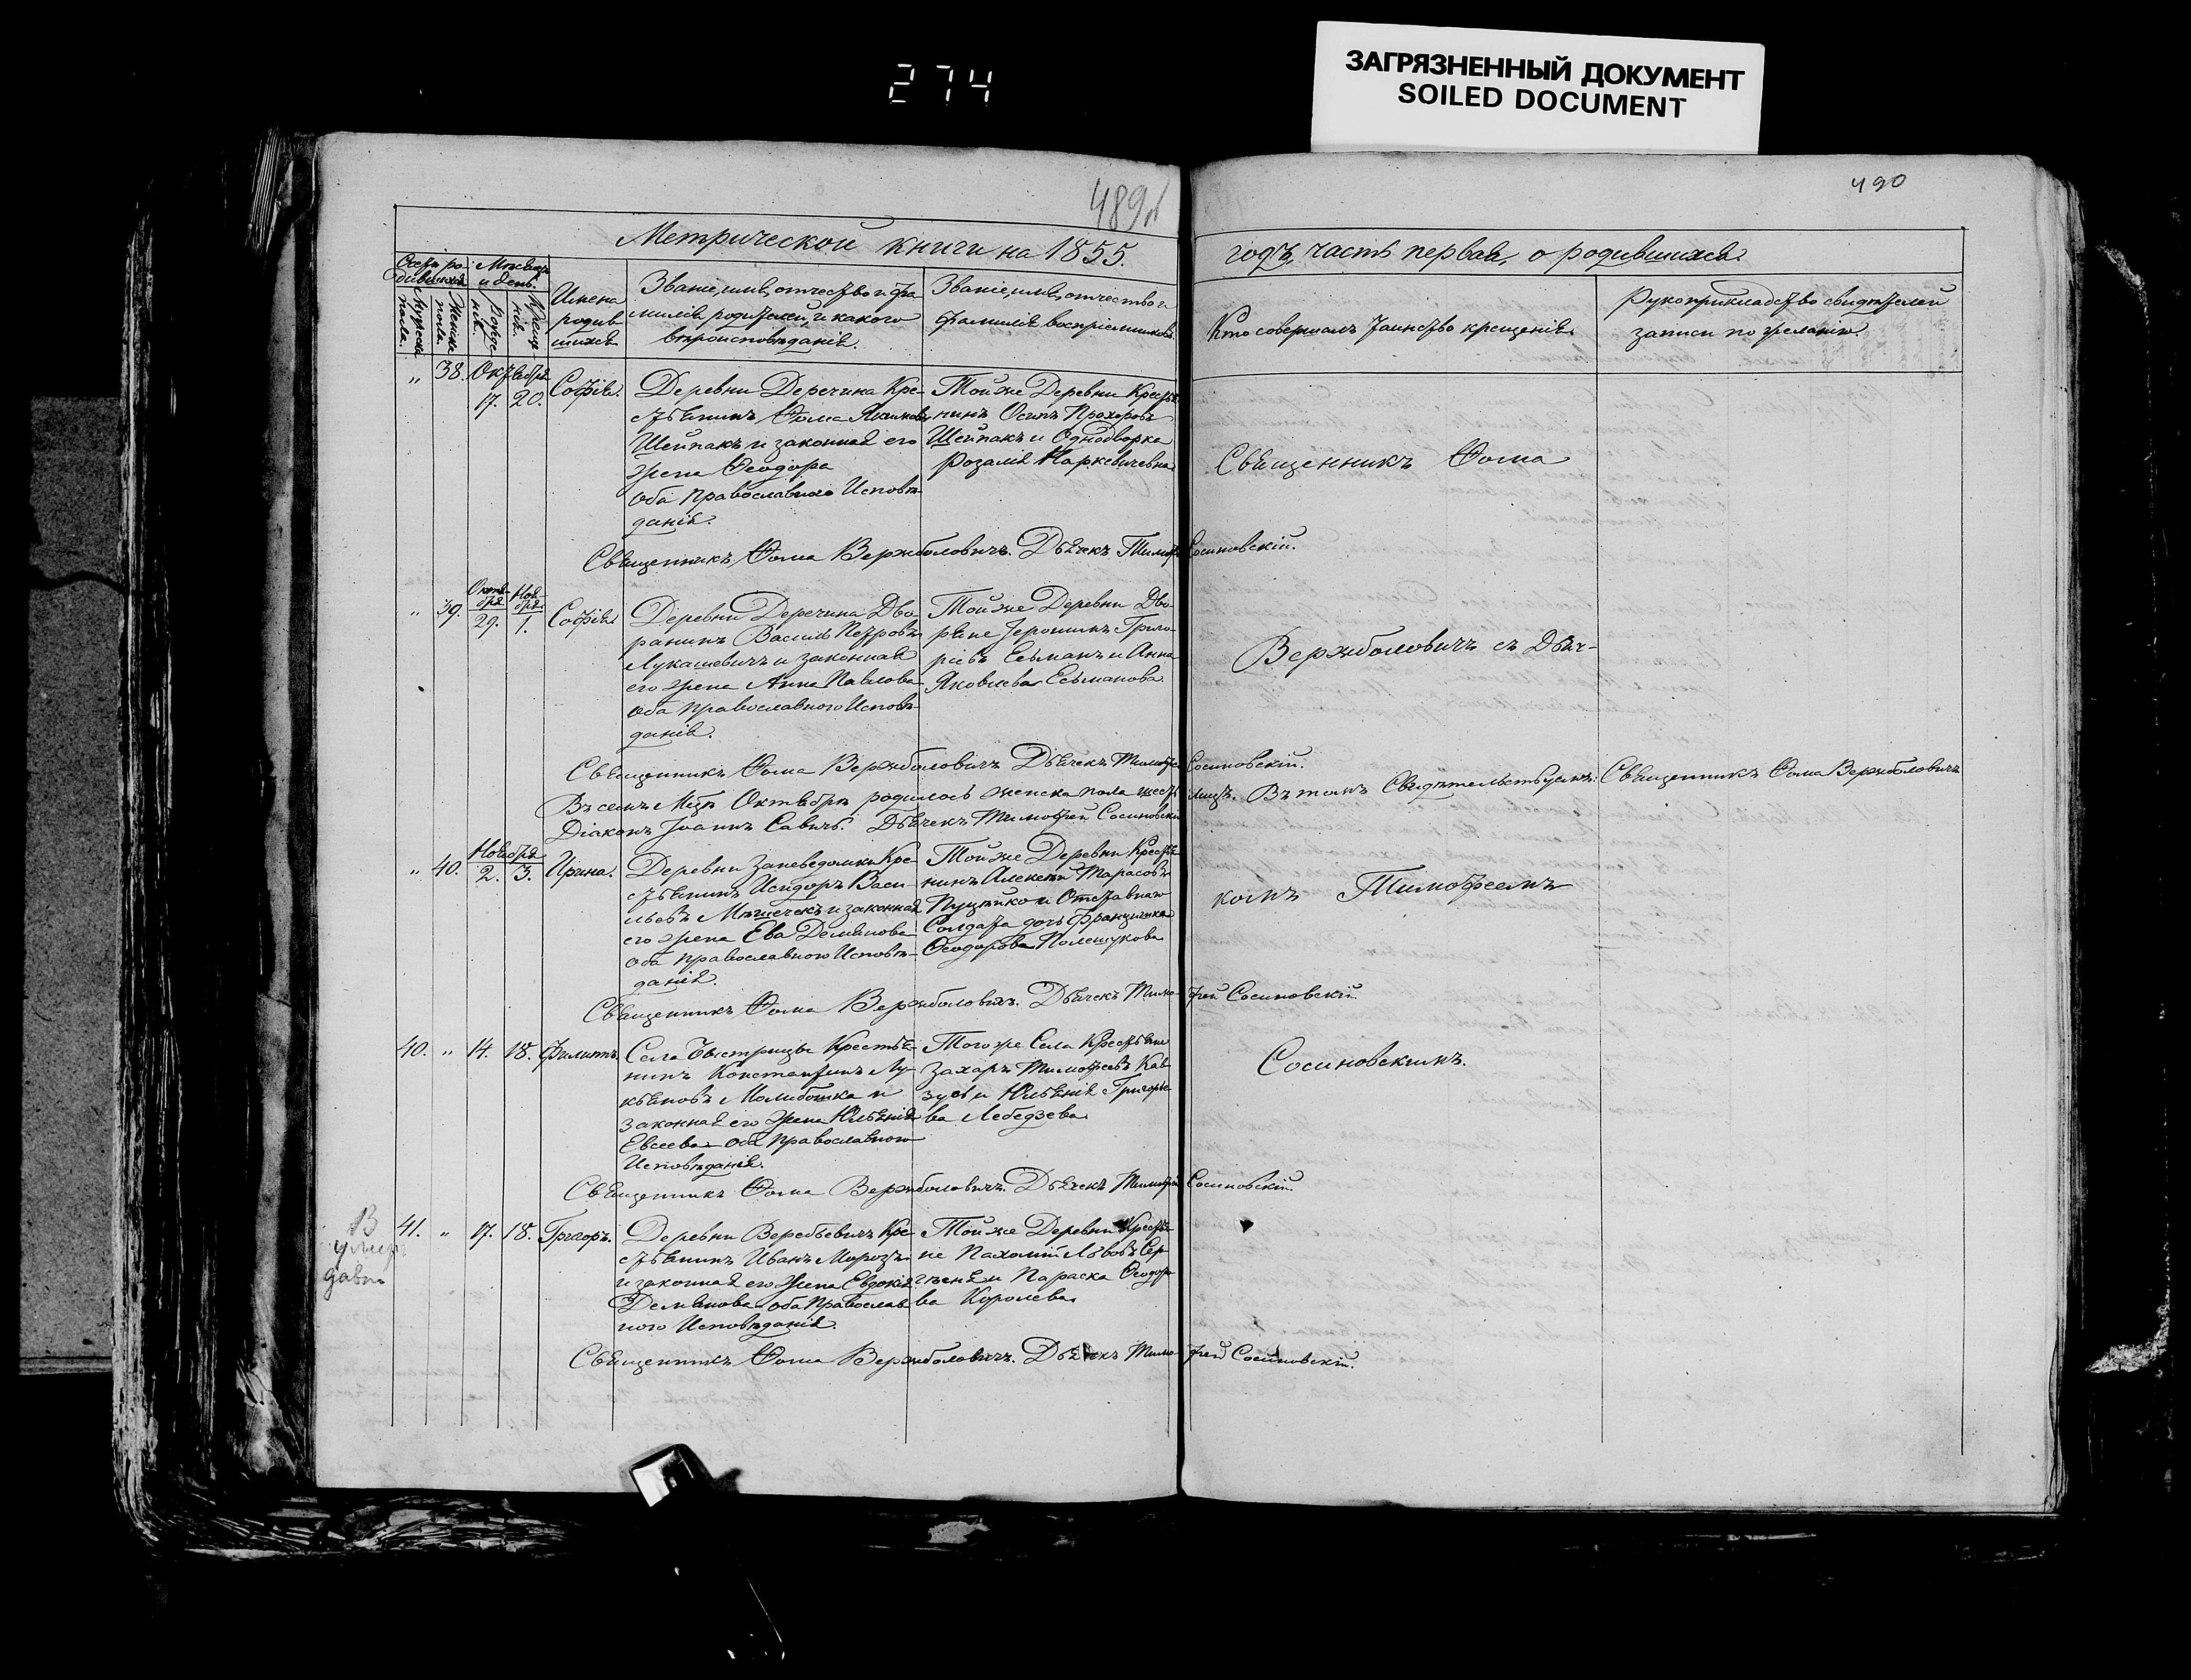 274
ЗАГРЯЗНЕННЫЙ ДОКУМЕНТ
SOILED DOCUMENT
489
490
Метрической книги на 1855.
годъ, часть первая, о родившихся.
Мѣсяцъ
и день.
Имена
родив
шихся
Званіе, имя, отчество и фа
милія родителей, и какого
вѣроисповѣданія.
Званіе, имя, отчество и
фамилія воспріемниковъ.
Кто совершалъ таинство крещенія.
Рукоприкладство свидѣтелей
записи по желанію.
Мужеска
пола.
Женска
пола
Рожде
нія.
Креще
нія.
„ 38. Октября
17. 20. Софія.
Деревни Деречина Кре-
стьянинъ Ѳома Якимовъ
Шейпакъ и законная его
жена Ѳеодора
оба православнаго Исповѣ-
данія.
Той же Деревни Крестья
нинъ Осипъ Прохоровъ
Шейпакъ и Однодворка
Розалія Наркевичевна
Священникъ Ѳома
Священникъ Ѳома Вержболовичъ. Дьячекъ Тимоѳей Сосиновскій.
„ 39. Октя-
бря
29. Ноя-
бря
1. Софія
Деревни Деречина Дво-
рянинъ Василь Петровъ
Лукашевичъ и законная
его жена Анна Павлова
оба православнаго Исповѣ-
данія.
Той же Деревни Дво-
ряне Іеронимъ Григо-
ріевъ Есьманъ и Анна
Яковлева Есьманова
Вержболовичъ съ Дьяч-
Священникъ Ѳома Вержболовичъ Дьячекъ Тимоѳей Сосиновскій.
Въ семъ Мцѣ Октябрѣ родилось женска пола шесть лицъ. Въ томъ Свидѣтельствуемъ: Священникъ Ѳома Вержболовичъ
Діаконъ Іоаннъ Савичъ. Дьячекъ Тимоѳей Сосиновскій
„ 40. Ноября
2. 3. Ирина.
Деревни Заневедомки Кре-
стьянинъ Исидоръ Васи-
льевъ Мѣшечекъ и законная
его жена Ева Демьянова
оба православнаго Исповѣ-
данія.
Той же Деревни Крестья
нинъ Алексѣй Тарасовъ
Пуцейко и Отставнаго
Солдата дочь Францишка
Ѳеодорова Полещукова
комъ Тимоѳеемъ
Священникъ Ѳома Вержболовичъ. Дьячекъ Тимо- ѳей Сосиновскій.
40. „ 14. 18. Филиппъ.
Села Быстрицы Крестья-
нинъ Константинъ Лу-
кьяновъ и
законная его жена Юльянія
Евсеева оба православнаго
Исповѣданія.
Того же Села Крестьяне
Захаръ Тимоѳеевъ
и Юльянія Григорье
ва Лебедзева
Сосиновскимъ.
Священникъ Ѳома Вержболовичъ. Дьячекъ Тимоѳей Сосиновскій.
умер
давн
41. „ 17. 18. Григоръ.
Деревни Веребьевичъ Кре-
стьянинъ Иванъ Морозъ
и законная его жена Евдокія
Демьянова оба Православ
ного Исповѣданія.
Той же Деревни Крестья
не Пахомій Львовъ Сер
гѣеня и Параска Ѳеодоро
ва Королева
Священникъ Ѳома Вержболовичъ. Дьячекъ Тимо- ѳей Сосиновскій.